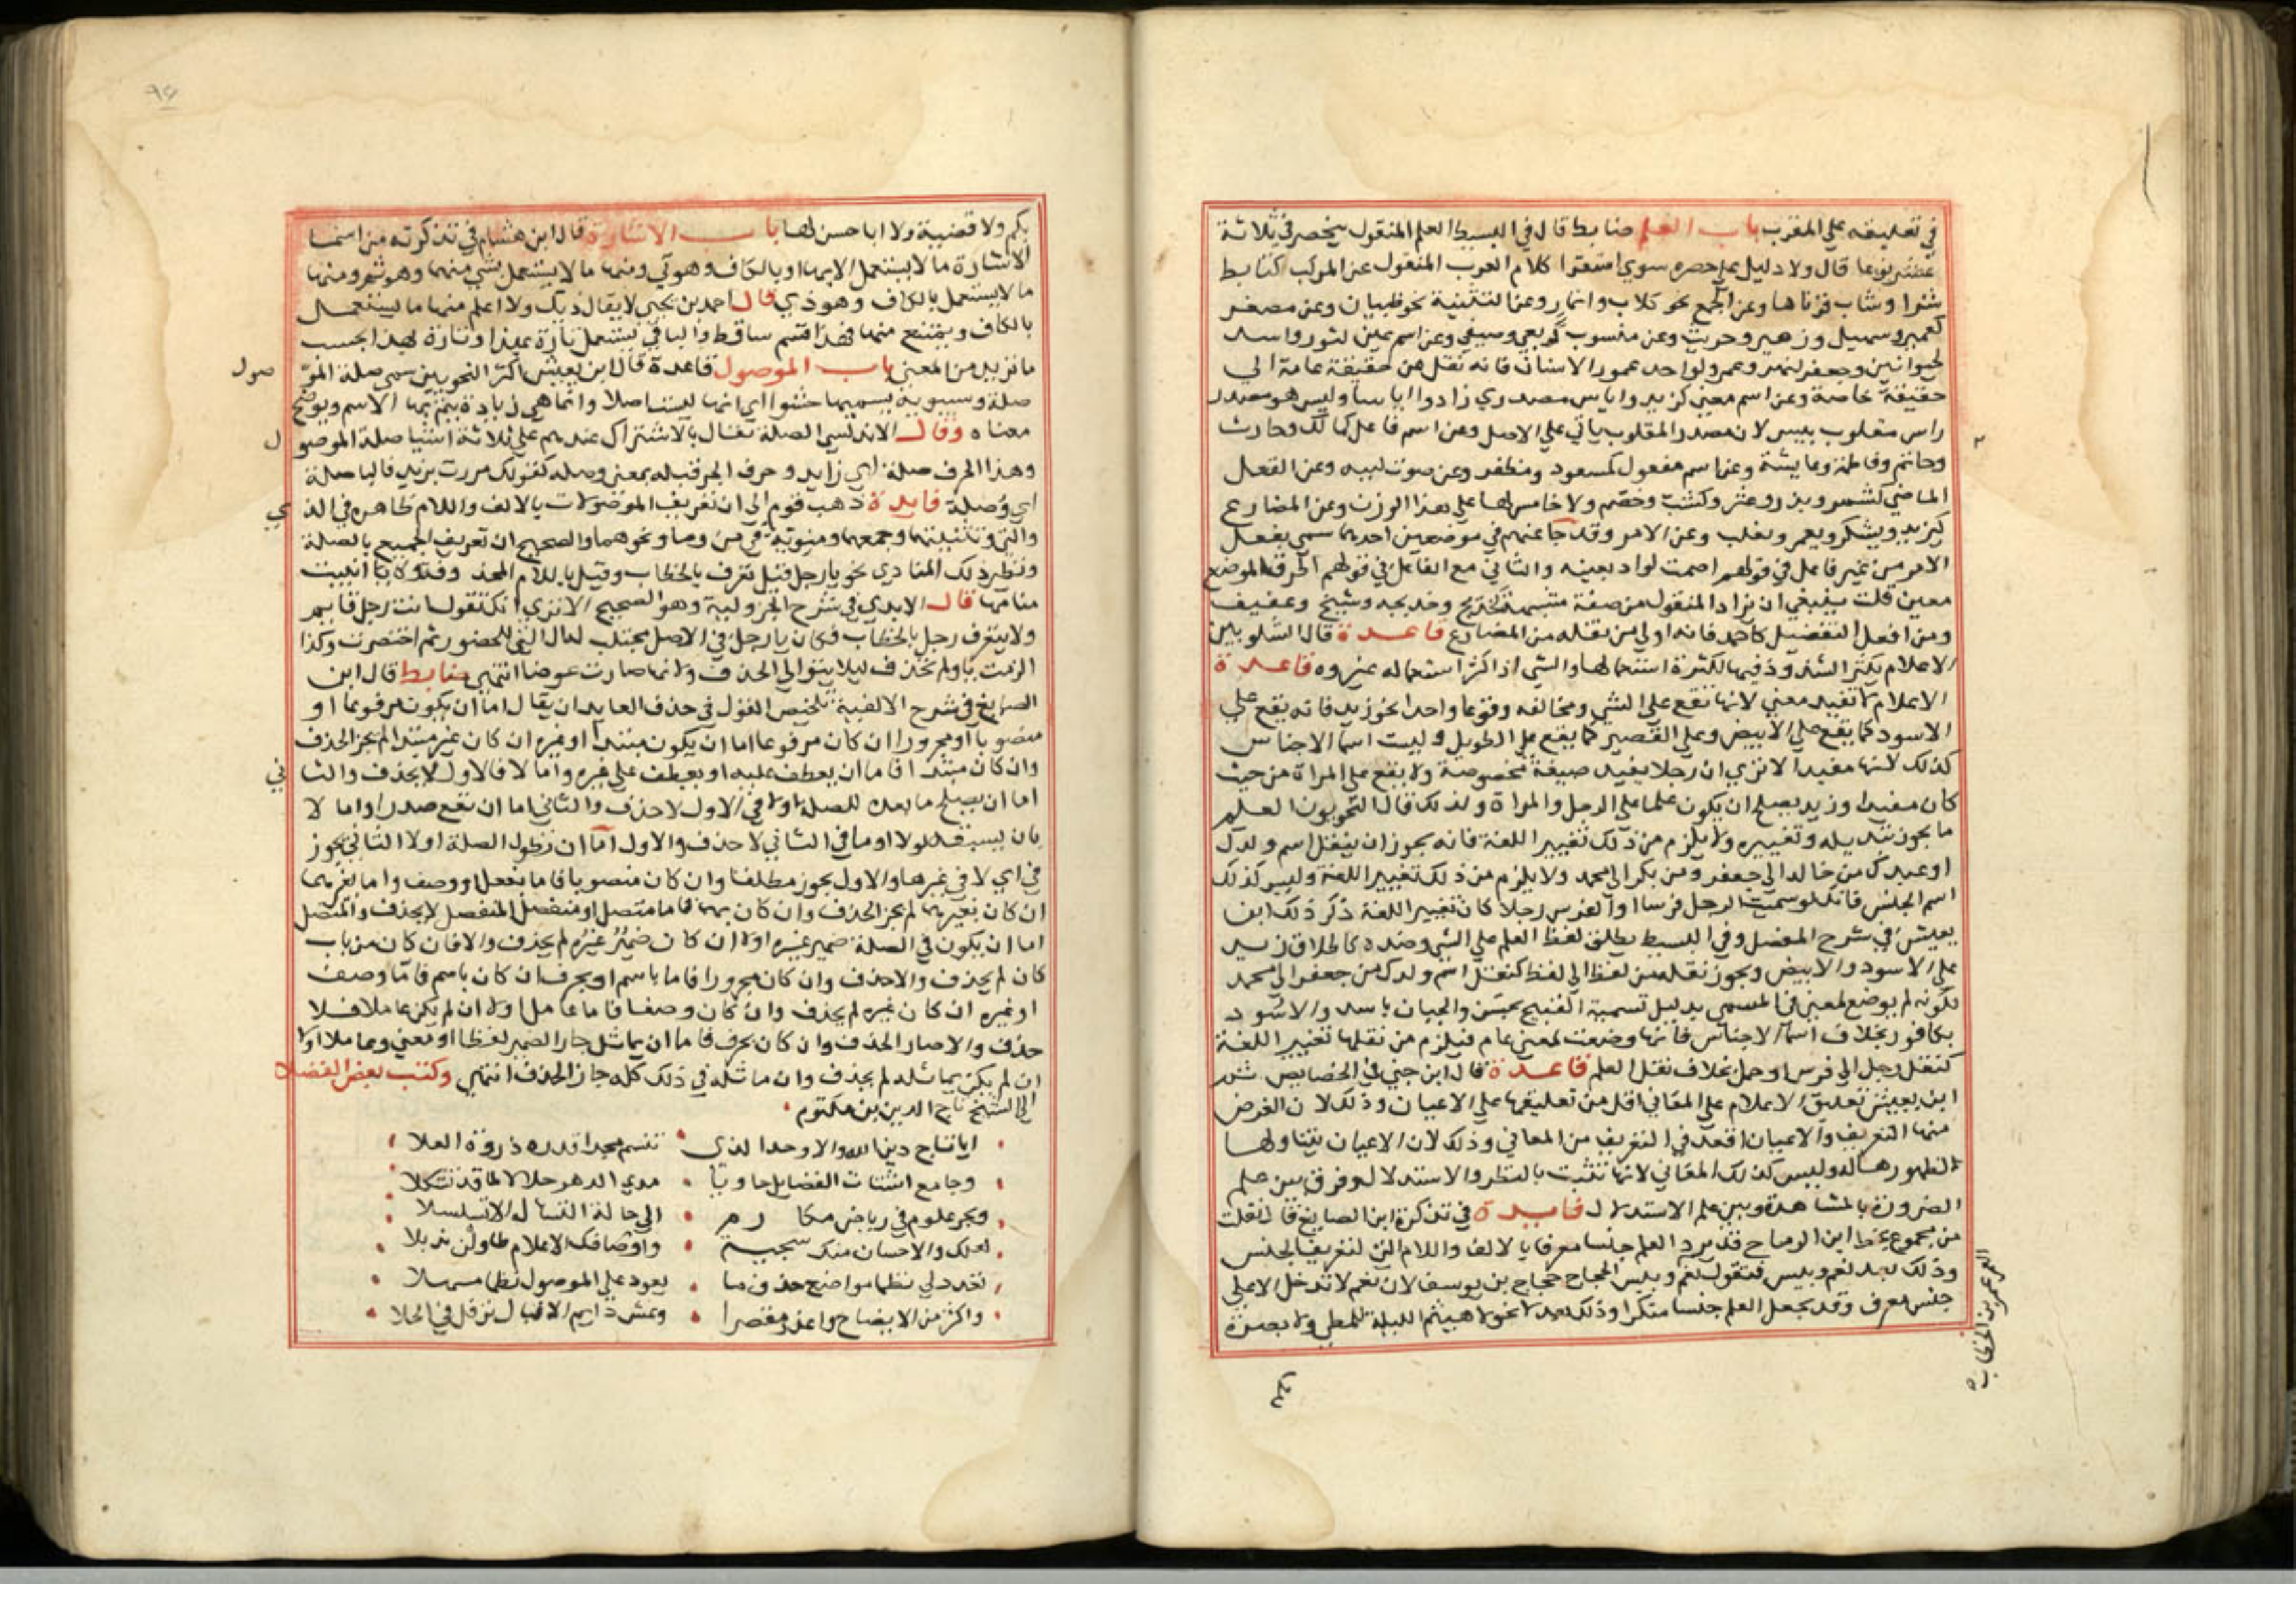 في تعليقه علي المقرب باب العلم ضابط قال في البسيط العلم المنقول ينحصر في ثلاثة
عشر نوعا قال ولا دليل علي حصره سوي استقرا كلام العرب المنقول عن المركب كتابط
شرا وشاب قرناها وعن الجمع نحو كلاب وانمار وعن التثنية نحو ظبيان وعن مصغر
كعمير وسهيل وزهير وحريث وعن منسوب كربعي وصيفي وعن اسم عين كثور واسد
لحيوانين وجعفر لنهر وعمرو لواحد عمور الاسنان فانه نقل من حقيقة عامة الي
حقيقة خاصة وعن اسم معني كزيد واياس مصدري زاد واايا سا وليس هو مصدر
راس مقلوب بيس لان مصدر المقلوب ياتي علي الاصل وعن اسم فاعل كمالك وحارث
وحاتم وفاطمة وعايشة وعن اسم مفعول كمسعود ومظفر وعن صوت كببه وعن الفعل
الماضي كشمر وبذر وعثر وكثب وخضم ولا خامس لها علي هذا الوزن وعن المضارع
كيزيد ويشكر ويعمر وتغلب وعن الامر وقد جا عنهم في موضعين احدهما سمي بفعل
الامر من غير فاعل في قولهم اصمت لواد بعينه والثاني مع الفاعل في قولهم اطرقا لموضع
معين قلت ينبغي ان يزاد المنقول من صفة مشبهة كخديج وخديجه وشيخ وعفيف
ومن افعل التفضيل كاحمد فانه اولي من نقله من المضارع قاعدة قال الشلوبين
الاعلام يكثر الشذوذ فيها لكثرة استعمالها والشي اذا كثر استعماله غيروه قاعدة
الاعلام لا تفيد معني لانها تقع علي الشي ومخالفه وقوعا واحدا نحو زيد فانه يقع علي
الاسود كما يقع علي الابيض وعلي القصير كما يقع علي الطويل وليست اسما الاجناس
كذلك لانها مفيدا لا تري ان رجلا يفيد صيغة مخصوصة ولا يقع علي المراة من حيث
كان مفيدا وزيد يصلح ان يكون علما علي الرجل والمراة ولذلك قال النحويون العلم
ما يجوز تبديله وتغييره ولا يلزم من ذلك تغيير اللغة فانه يجوز ان ينقل اسم ولدك
او عبدك من خالد الي جعفر ومن بكر الي محمد ولا يلزم من ذلك تغيير اللغة وليس كذلك
اسم الجنس فانك لو سميت الرجل فرسا او الفرس رجلا كان تغيير اللغة ذكر ذلك ابن
يعيش في شرح المفصل وفي البسيط يطلق لفظ العلم علي الشي وضده كاطلاق زيد
علي الاسود والابيض ويجوز نقله من لفظ الي لفظ كنقل اسم ولدك من جعفر الي محمد
لكونه لم يوضع لمعني في المسمي بدليل تسمية القبيح بحسن والجبان باسد والاسود
بكافور بخلاف اسما الاجناس فانها وضعت لمعني عام فيلزم من نقلها تغيير اللغة
كنقل رجل الي فرس او جمل بخلاف نقل العلم قاعدة قال ابن جني في الخصايص
ابن يعيش تعليق الاعلام علي المعاني اقل من تعليقها علي الاعيان وذلك لان الغرض
منها التعريف والاعيان اقعد في التعريف من المعاني وذلك لان الاعيان يتناولها
لظهورها له وليس كذلك المعاني لانها تثبت بالنظر والاستدلال وفرق بين علم
الضرورة بالمشاهدة وبين علم الاستدلال فايدة في تذكرة ابن الصايغ قال نقلت
من مجموع بخط ابن الرماح قد يرد العلم جنسا معرفا بالالف واللام التي لتعريف الجنس
وذلك بعد نعم وبيس فتقول نعم وبيس الحجاج حجاج بن يوسف لان نعم لا تدخل الا علي
جنس معرف وقد يجعل العلم جنسا منكرا وذلك بعد لا نحو لا هيثم الليلة للمطي ولا بصرة
العمر عمر بن الخطاب
بكم ولا قضية ولا ابا حسن لها باب الاشارة قال ابن هشام في تذكرته من اسما
الاشارة ما لا يستعمل الا بها او بالكاف وهو تي ومنها ما لا يستعمل بشي منهما وهو ثم ومنها
ما لا يستعمل بالكاف وهو ذي قال احمد بن يحيي لا يقال ذيك ولا اعلم منها ما يستعمل
بالكاف ويمتنع منها فهذا قسم ساقط والباقي يستعمل تارة بهذا وتارة بهذا بحسب
ما تريد من المعني باب الموصول قاعدة قال ابن يعيش اكثر النحويين سمي صلة المو صول
صلة وسيبويه يسميها حشوا اي انها ليست اصلا وانما هي زيادة يتم بها الاسم ويوضح
معناه وقال الاندلسي الصلة تقال بالاشتراك عندهم علي ثلاثة اشيا صلة الموصو ل
وهذا الحرف صلة اي زايد وحرف الجر قبله بمعني وصله كقولك مررت بزيد فالبا صلة
اي وصلة فايدة ذهب قوم الي ان تعريف الموصولات بالالف واللام ظاهره في الذ ي
والتي وتثنيتهما وجمعهما ومنوية في من وما ونحوهما والصحيح ان تعريف الجميع بالصلة
ونظير ذلك المنادي نحو يا رجل قيل تعرف بالخطاب وقيل باللام المحذ وفة ولا يا انيبت
منابها قال الابدي في شرح الجزولية وهو الصحيح الا تري انك تقول انت رجل قايم
ولا يتعرف رجل بالخطاب فكان يا رجل في الاصل مجتلب لها ال التي للحضور ثم اختصرت وكذا
الزمت يا ولم تحذف ليلا يتوالي الحذف ولانها صارت عوضا انتهي ضابط قال ابن
الصايغ في شرح الالفية تلخيص القول في حذف العايد ان يقال اما ان يكون مرفوعا او
منصوبا او مجرورا ان كان مرفوعا اما ان يكون مبتدا او غيره ان كان غير مبتدا لم يجز الحذف
وان كان مبتدا فاما ان يعطف عليه او يعطف علي غيره واما لا فالاول لا يحذف والثا ني
اما ان يصلح ما بعده للصلة اولا في الاول لا حذف والثاني اما ان تقع صدرا واما لا
بان يسبقه لولا او ما في الثاني لا حذف والاول اما ان تطول الصلة اولا الثاني يجوز
في اي لا في غيرها والاول يجوز مطلقا وان كان منصوبا فاما بفعل او وصف واما بغيرهما
ان كان بغيرهما لم يجز الحذف وان كان بهما فاما متصل او منفصل المنفصل لا يحذف والمتصل
اما ان يكون في الصلة ضمير غيره اولا ان كان ضمير غيره لم يحذف والا فان كان من باب
كان لم يحذف والا حذف وان كان مجرورا فاما باسم او بحرف ان كان باسم فاما وصف
او غيره ان كان غيره لم يحذف وان كان وصفا فاما عامل اولا ان لم يكن عاملا فلا
حذف والا صار الحذف وان كان بحرف فاما ان يماثل جار الضمير لفظا او معني وعاملا اولا
ان لم يكن يماثله لم يحذف وان ماثله في ذلك كله جاز الحذف انتهي وكتب بعض الفضلا
الي الشيخ تاج الدين بن مكتوم
ايا تاج دين الله والاوحد الذي تسنم مجدا قدره ذروة العلا
وجامع اشتات الفضايل حاويا مدي الدهر حلالا لما قد تشكلا
وبحر علوم في رياض مكا رم الي حالة التسال لا تسلسلا
لعلك والاحسان منك سجية واوصافك الاعلام طاولن يذبلا
تعدد لي نظما مواضع حذف ما يعود علي الموصول نظما مسهلا
واكثر من الايضاح واعذر مقصرا وعش دايم الاقبال ترفل في الحلا